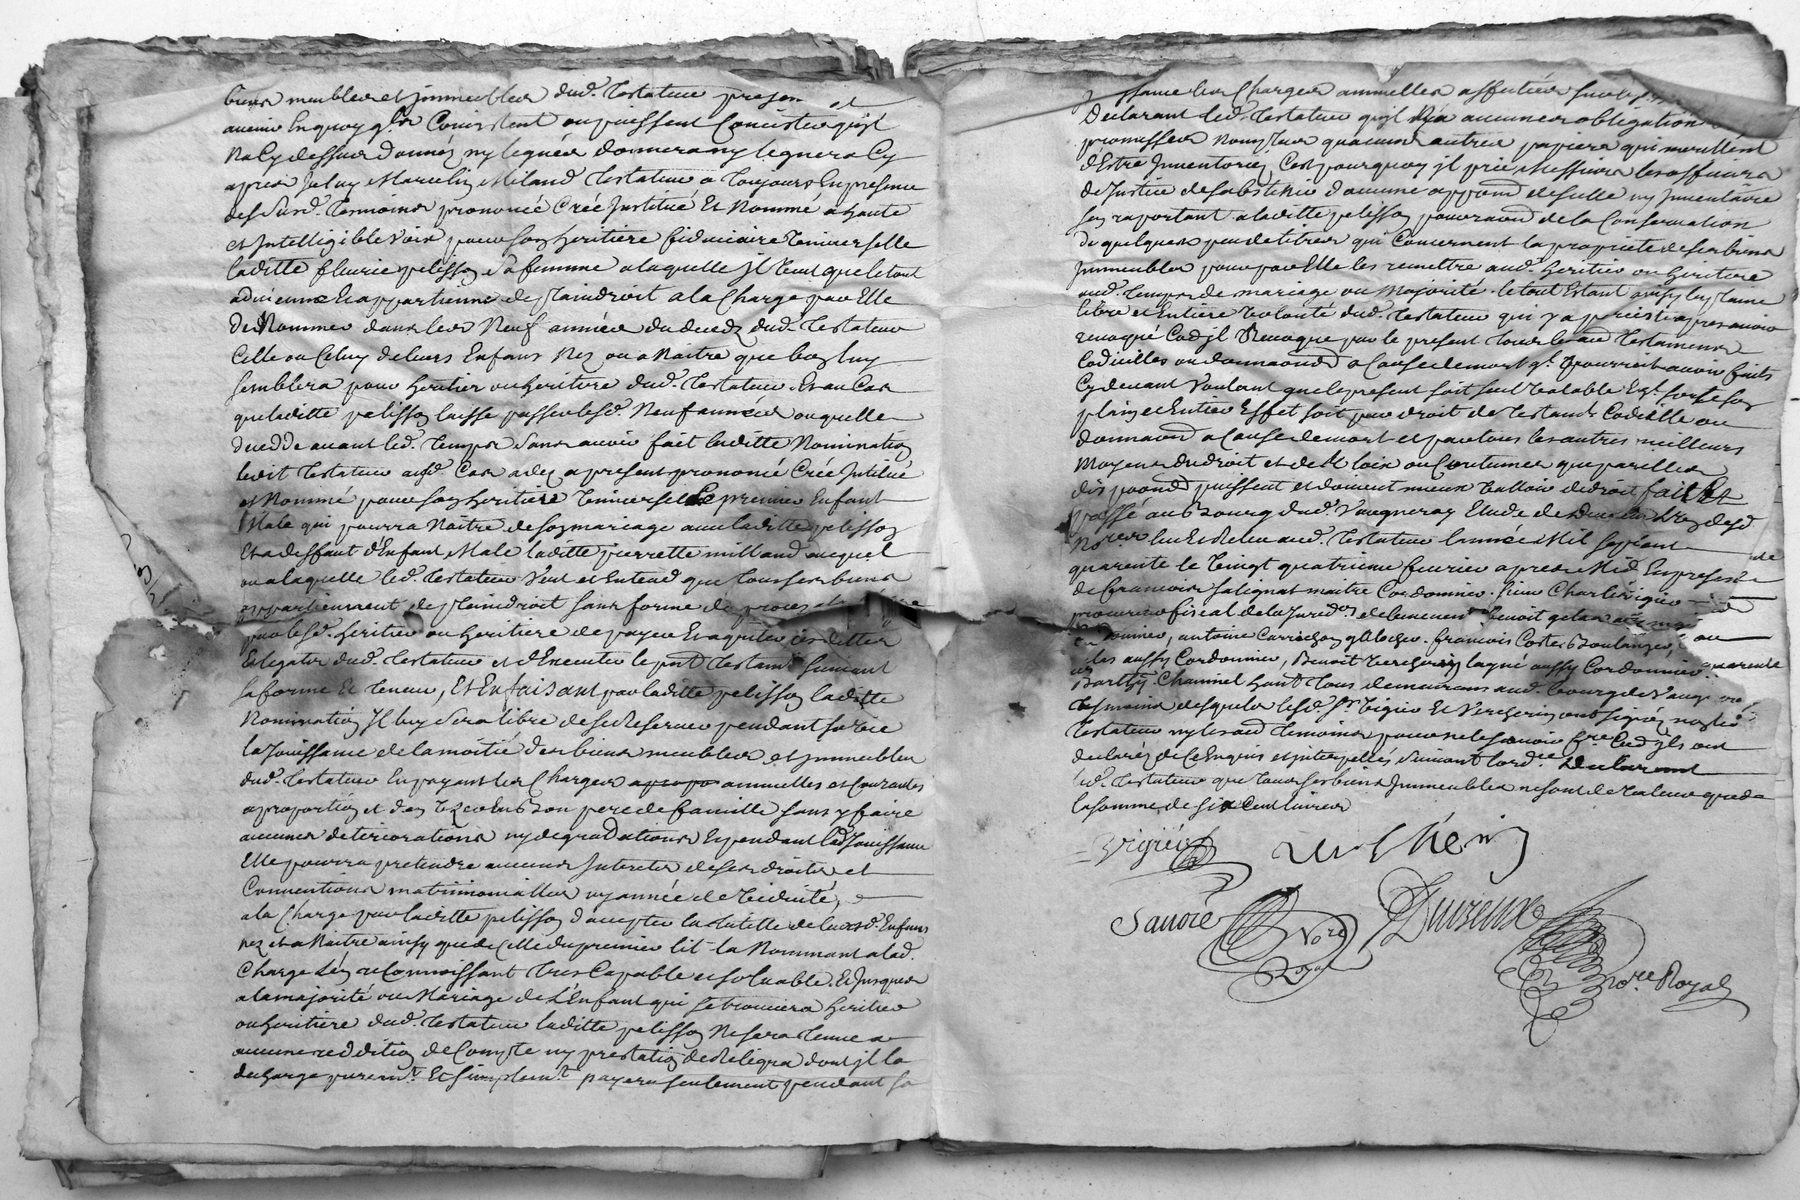 biens meubles et jmmeubles dud. testateur presens et
avenir En quoy qls Consistent ou puissent Concister qujl
Na Cy dessus donnéz ny leguéz donnera ny leguera Cy
apres Jceluy Marcelin Miland testateur a toujours En presence
desSusd. tesmoins prononcé Créé Jnstitué Et Nommé a haute
et Jntelligible voix pour son heritiere fiduciaire Universelle
laditte fleurie pelisson Sa femme a laquelle jl veut que le tout
advienne Et appartienne de plain droit a la Charge par Elle
de Nommer dans les Neuf années du decedz dud. testateur
Celle ou Celuy de leurs Enfans Nez ou a Naitre que bon luy
semblera pour heritier ou heritiere dud. testateur. Et au Cas
que laditte pelisson laisse passer lesd. Neuf années ou quelle
decedde avant led. temps Sans avoir fait laditte Nomination
ledit testateur aud. Cas a dez a present prononcé Créé Jntitué
et Nommé pour son heritiere Universelle Le premier Enfant
Male qui pourra Naître de son mariage avec laditte pelisson
Et a deffaut d'Enfant Male laditte pierrette milland auquel
ou a laquelle led. testateur Veut et Entend que tous ses biens
appartiennent de plain droit sans forme de proces
par lesd. heritier ou heritiere de payer Et aquiter les dettes
Et legats dud. testateur et d'Executer le pnt testamt Suivant
sa forme Et teneur, Et En faisant par laditte pelisson laditte
Nomination Jl luy Sera libre de se Reserver pendant sa vie
la Jouissance de la moitié des biens meubles et jmmeubles
dud. testateur En payant les Charges annuelles et Courantes
a proportion et d'En User En Bon pere de famille sans y faire
aucunes deteriorations ny degradations En pendant lad. Jouissance
Elle pourra pretendre aucuns Interets de ses droits et
Conventions matrimonialles ny année de viduité,
a la Charge par laditte pelisson d'accepter la tutelle de leursd. Enfans
nez et a Naitre ainsy que de Celle du premier lit la Nommant a lad.
Charge L'En reConnoissant tres Capable et solvable. Et Jusques
a la majorité ou Mariage de L'Enfant qui se trouvera heritier
ou heritiere dud. testateur laditte pelisson Ne sera tenue a
aucune reddition de Compte ny prestation de Reliqua dont jl la
decharge puremt. Et simplemt. payera seulement pendant sa
Jouissance les Charges annuelles affectées sur
Declarant led. testateur qujl N'a aucunes obligations
promesses Nouriture quaucuns autres papiers qui meritent
d'Estre Jnventoriez C'est pourquoy jl prie Messieurs les officiers
de Justice de s'abstenir d'aucune apposon de scellé ny Jnventaire
s'en raportant a laditte pelisson pour raison de la Conservation
de quelques peu de titres qui Concernent la proprieté de ses biens
Jmmeubles pour par Elle les remettre aud. heritier ou heritiere
aud. temps de mariage ou Majorité. le tout Estant ainsy la pure
libre et Entiere Volonté dud. testateur qui y a persisté apres avoir
revoqué Co'e jl Revoque par le present tous les autres testamens
Codicilles ou donnaons a Cause de mort ql pourroit avoir faits
Cy devant Voulant que le present soit seul valable Et sorte son
plain et Entier Effet soit par droit de testamt Codicille ou
donnaon a Cause de mort et par tous les autres meilleurs
Moyens du droit et de la loix ou Coutumes que pareilles
dispoaons puissent et doivent mieux valloir de droit fait Et
passé au Bourg dud. Vaugneray Etude de Dureux L'un desd.
Nores leu Et Releu aud. testateur l'année Mil sept cent
quarente le Vingt quatrieme fevrier apres Midi En presence
de francois salignat maitre Cordonnier. sieur Charle Vigier
procureur fiscal de la Jurdon Benoit
Cordonnier, antoine Carrichon francois Coste Boulanger,
aussy Cordonnier, Benoit Vercherin layné aussy Cordonnier quarente
Barthy. Chaminel habt. tous demeurans aud. bourg de Vaugneray
tesmoins desquels lesd. Sr Vigier Et Vercherin ont signéz non led.
testateur ny les autres temoins pour ne le savoir fre Co'e jls ont
declaréz de Ce Enquis et jnterpelléz Suivant lord'ce Declarant
led. testateur que tous ses biens Jmmeubles ne sont de Valeur que de
la somme de six Cent livres
Vigier Vercherin
Savoie Nore Royal Dureux Nore Royal